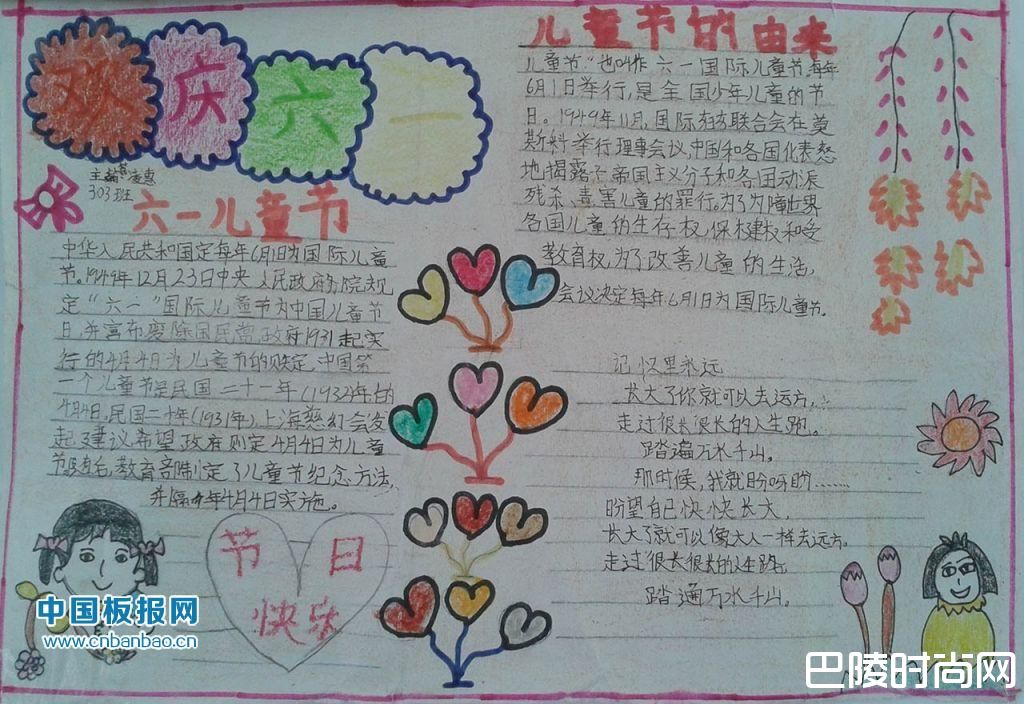 欢庆六一
主编
303班
六一儿童节
中华人民共和国定每年6月1日为国际儿童
节.1949年12月23日中央人民政府务院规
定“六一”国际儿童节为中国儿童节
日,并宣布废除国民党政府1931起实
行的4月4月为儿童节的规定.中国第
一个儿童节是民国二十一年(1932)年的
4月4日,民国二十年(1931年),上海慈幻会发
起建议,希望政府则定4月4日为儿童
教育部制定了儿童节纪念方法,
年4月4日实施。
节日
快乐
儿童节的由来
儿童节”也叫作六一国际儿童节,每年
6月1日举行,是全国少年儿童的节
日。1949年11月,国际妇女联合会在莫
斯科举行理事会议,中国和各国代表怒
地揭露了帝国主义分子和各国动派
残杀、毒害儿童的罪行。为了为障世界
各国儿童的生存权,保健权和受
教育权,为了改善儿童的生活,
会议决定每年6月1日为国际儿童节.
记忆里永远
长大了你就可以去远方,
走过很长很长的人生跑。
踏遍万水千山。
那时候,我就盼呀盼……
盼望自己快快长大,
长大了就可以像大人一样去远方.
走过很长很长的人生路,
踏遍万水千山。
中国板报网
www.cnbanbao.cn
巴陵时尚网